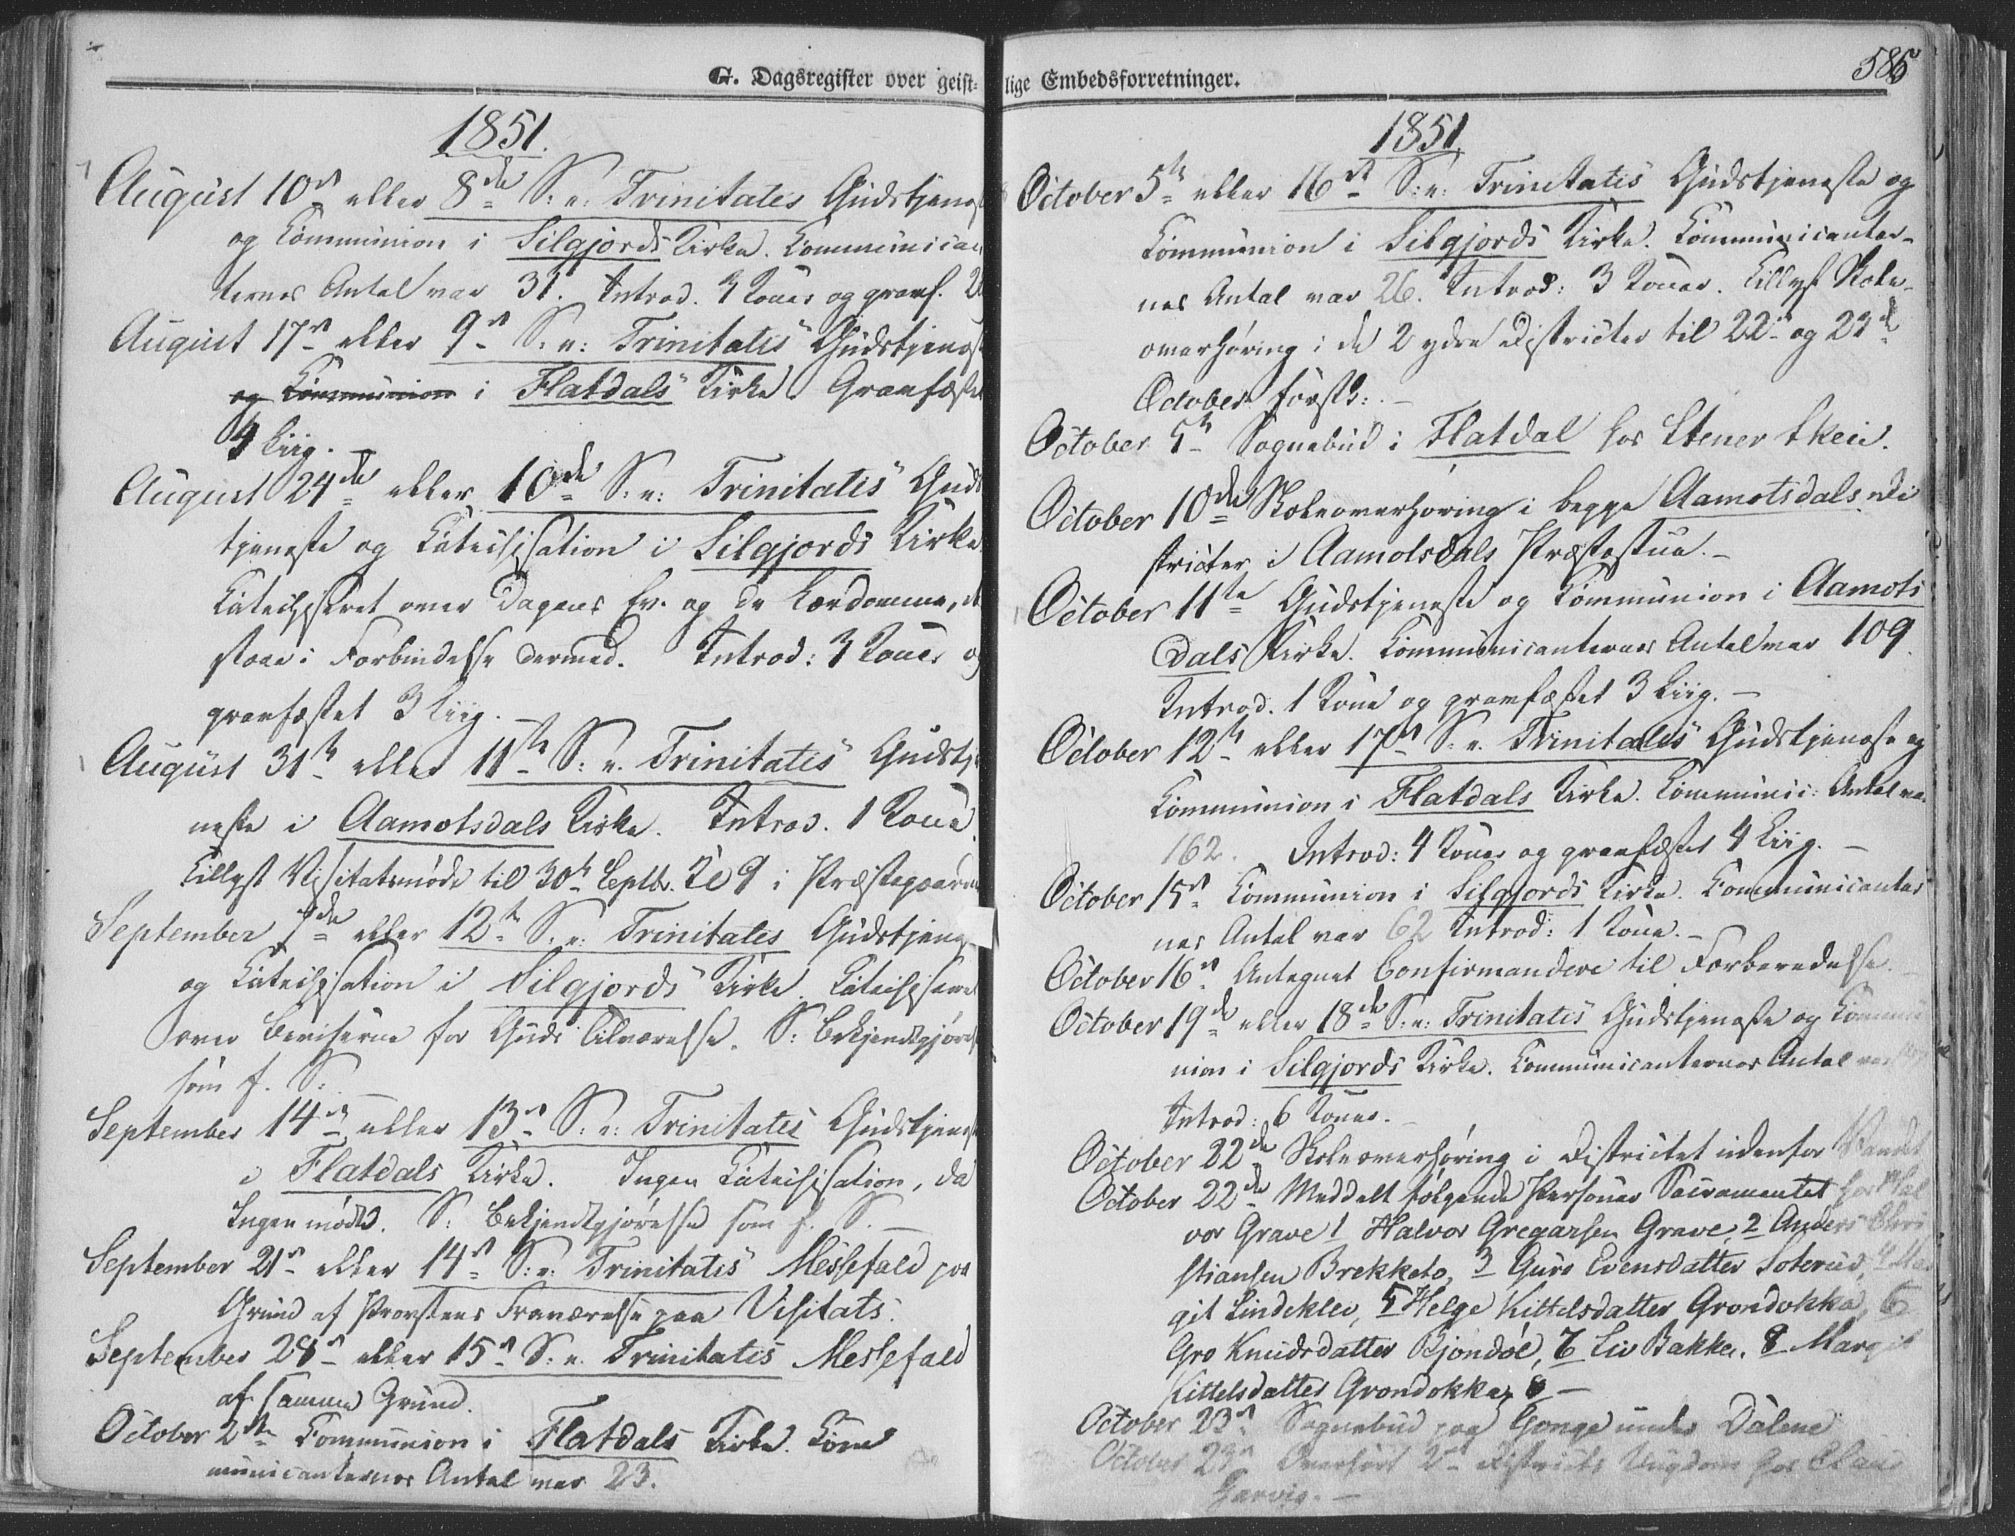 G. Dagsregister over geist-
1851.
August 10de eller 8de S. e. Trinitatis Gudstjenes
og Communion i Silgjords Kirke. Communican
ternes Antal var 31. Introd. 3 Koner og gravf.
August 17de eller 9de S. e. Trinitatis Gudstjenest
og Communion i Flatdals Kirke Gravfæstet
4 Liig. —
August 24de eller 10de S. e. Trinitatis Guds
tjeneste og Catechisation i Silgjords Kirke
Catechiseret over Dagens Ev. og de Lærdomme, der
staae i Forbindelse dermed. Introd: 3 Koner og
gravfæstet 3 Liig. —
August 31te eller 11te S. e. Trinitatis Gudstje
neste i Aamotsdals Kirke. Introd. 1 Kone.
Tillyst Visitatsmøde til 30te Septbr. Kl 9 i Præstegaarden
September 7de eller 12te S. e. Trinitatis Gudstjenes
og Catechisation i Silgjords Kirke Catechiseret
over Beviserne for Guds Tilværelse. S: Bekjendtgjørelse
som f. S:
September 14de eller 13de S. e: Trinitatis Gudstjenest
i Flatdals Kirke. Ingen Catechisation, da
Ingen mødte. S: Bekjendtgjørelse som f. S. —
September 21de eller 14de S. e: Trinitatis Messefald paa
Grund af Provstens Fraværelse paa Visitats.
September 28de eller 15de S. e. Trinitatis Messefald
af samme Grund.
October 2den Communion i Flatdals Kirke. Com
municanternes Antal var 23.
lige Embedsforretninger.
585
1851.
October 5te eller 16de S: e: Trinitatis Gudstjeneste og
Communion i Silgjords Kirke. Communicanter-
nes Antal var 26. Introd: 3 Koner. Tillyst Skole-
overhøring i de 2 ydre Districter til 22de og 23de
October førstk: —
October 5te Sognebud i Flatdal hos Stener Skeie.
October 10de Skoleoverhøring i begge Aamotsdals Di
stricter i Aamotsdals Præstestue. —
October 11te Gudstjeneste og Communion i Aamots
dals Kirke. Communicanternes Antal var 109.
Introd. 1 Kone og gravfæstet 3 Liig. —
October 12te eller 17de S. e. Trinitatis Gudstjeneste og
Communion i Flatdals Kirke. Communic: Antal var
162. Introd: 4 Koner og gravfæstet 4 Liig. —
October 15de Communion i Silgjords Kirke. Communicanter
nes Antal var 62 Introd: 1 Kone. —
October 16de Antegnet Confirmandere til Forberedelse. —
October 19de eller 18de S. e: Trinitatis Gudstjeneste og Commu
nion i Silgjords Kirke. Communicanternes Antal var
Introd: 6 Koner. —
October 22de Skoleoverhøring i Districtet udenfor Vandet
October 22de Meddelt følgende Personer Sacramentet hos Hal
vor Grave 1 Halvor Gregarsen Grave, 2 Anders Chri
stiansen Brekketo, 3 Guro Evensdatter Soterud, 4 Mar
git Lindeklev, 5 Helge Kittelsdatter Grondokka, 6
Gro Knudsdatter Bjondøl, 7 Liv Bakke. 8 Margit
Kittelsdatter Grondokka, —
October 23de Sognebud paa Gonge under Dalene
October 23de Overhørt 2det Districts Ungdom hos Claus
Garvig. —